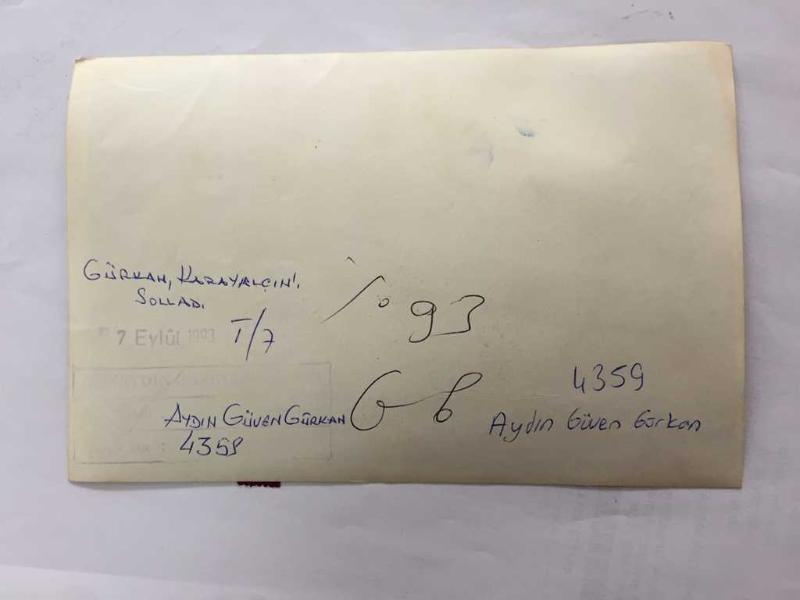 GÜRKAN, KARAYALÇIN'I
SOLLADI.
7 Eylül 1993
T/7
% 93
G 6
AYDIN GÜVEN GÜRKAN
4359
4359
Aydın Güven Gürkan